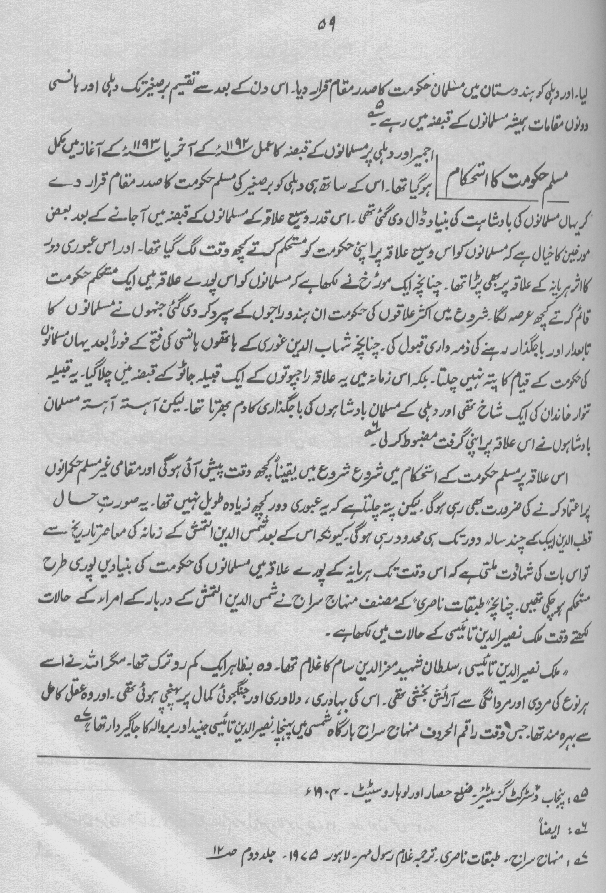 ۵۹
لیا۔ اور دہلی کو ہندوستان میں مسلمان حکومت کا صدر مقام قرار دیا۔ اس دن کے بعد سے تقسیم برصغیر تک دہلی اور ہانسی
دونوں مقامات ہمیشہ مسلمانوں کے قبضہ میں رہے ۵ے
مسلم حکومت کا استحکام
اجمیر اور دہلی پر مسلمانوں کے قبضہ کا عمل ۱۱۹۲ء کے آخر یا ۱۱۹۳ء کے آغاز میں مکمل
ہوگیا تھا۔ اس کے ساتھ ہی دہلی کو برصغیر کی مسلم حکومت کا صدر مقام قرار دے
کر یہاں مسلمانوں کی بادشاہت کی بنیاد ڈال دی گئی تھی۔ اس قدر وسیع علاقہ کے مسلمانوں کے قبضہ میں آ جانے کے بعد بعض
مورخین کا خیال ہے کہ مسلمانوں کو اس وسیع علاقہ پر اپنی حکومت کو مستحکم کرتے کچھ وقت لگ گیا تھا۔ اور اس عبوری دور
کا اثر ہریانہ کے علاقہ پر بھی پڑا تھا۔ چنانچہ ایک مورخ نے لکھا ہے کہ مسلمانوں کو اس پورے علاقہ میں ایک مستحکم حکومت
قائم کرتے کچھ عرصہ لگا۔ شروع میں اکثر علاقوں کی حکومت ان ہندو راجوں کے سپرد کر دی گئی جنہوں نے مسلمانوں کا
تابعدار اور باجگذار رہنے کی ذمہ داری قبول کی۔ چنانچہ شہاب الدین غوری کے ہاتھوں ہانسی کی فتح کے فوراً بعد یہاں مسلمانوں
کی حکومت کے قیام کا پتہ نہیں چلتا۔ بلکہ اس زمانہ میں یہ علاقہ راجپوتوں کے ایک قبیلہ جاٹو کے قبضہ میں چلا گیا۔ یہ قبیلہ
تنوار خاندان کی ایک شاخ تھی اور دہلی کے مسلمان بادشاہوں کی باجگذاری کا دم بھرتا تھا۔ لیکن آہستہ آہستہ مسلمان
بادشاہوں نے اس علاقہ پر اپنی گرفت مضبوط کر لی ۶ے
اس علاقہ پر مسلم حکومت کے استحکام میں شروع شروع میں یقیناً کچھ وقت پیش آئی ہوگی اور مقامی غیر مسلم حکمرانوں
پر اعتماد کرنے کی ضرورت بھی رہی ہوگی۔ لیکن پتہ چلتا ہے کہ یہ عبوری دور کچھ زیادہ طویل نہیں تھا۔ یہ صورت حال
قطب الدین ایبک کے چند سالہ دور تک ہی محدود رہی ہوگی۔ کیونکہ اس کے بعد شمس الدین التمش کے زمانہ کی معاصر تاریخ سے
تو اس بات کی شہادت ملتی ہے کہ اس وقت تک ہریانہ کے پورے علاقہ میں مسلمانوں کی حکومت کی بنیادیں پوری طرح
مستحکم ہو چکی تھیں۔ چنانچہ "طبقات ناصری" کے مصنف منہاج سراج نے شمس الدین التمش کے دربار کے امراء کے حالات
لکھتے وقت ملک نصیر الدین تائیسی کے حالات میں لکھا ہے۔
"ملک نصیر الدین تائیسی، سلطان شہید معز الدین سام کا غلام تھا۔ وہ بظاہر ایک کم رو ترک تھا۔ مگر اللہ نے اسے
ہر نوع کی مردی اور مردانگی سے آرائش بخشی تھی۔ اس کی بہادری، دلاوری اور جنگجوئی کمال پر پہنچی ہوئی تھی۔ اور وہ عقل کامل
سے بہرہ مند تھا۔ جس وقت راقم الحروف منہاج سراج بارگاہ شمسی میں پہنچا۔ نصیر الدین تائیسی جنید اور بروالہ کا جاگیردار تھا" ۷ے
۵ے: پنجاب ڈسٹرکٹ گزیٹیئر۔ ضلع حصار اور لوہارو سٹیٹ۔ ۱۹۰۴ء
۶ے: ایضاً
۷ے: منہاج سراج۔ طبقات ناصری۔ ترجمہ غلام رسول مہر۔ لاہور ۱۹۷۵۔ جلد دوم صہ ۱۲